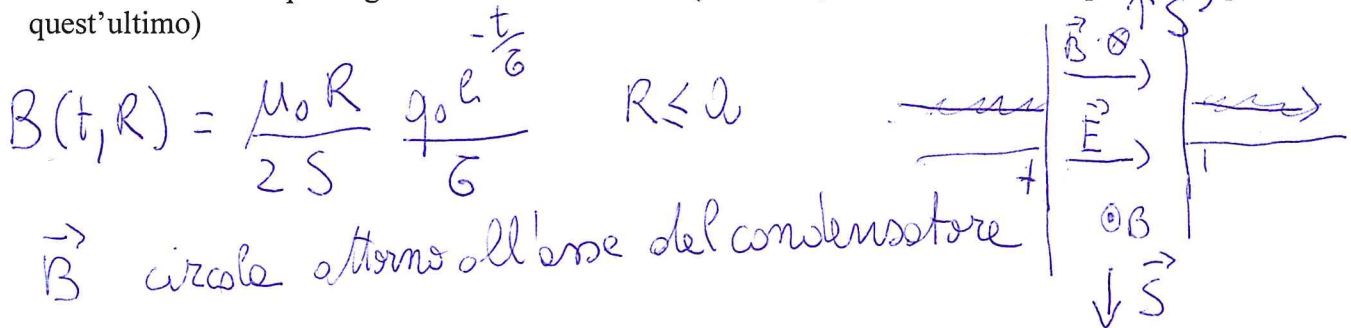 quest'ultimo)
B(t,R) = μ₀R / 2S · q₀e^(-t/τ) / τ    R ≤ a
B⃗ circola attorno all'asse del condensatore
B⃗ ⊗ S⃗
E⃗
+ -
⊙B
↓ S⃗